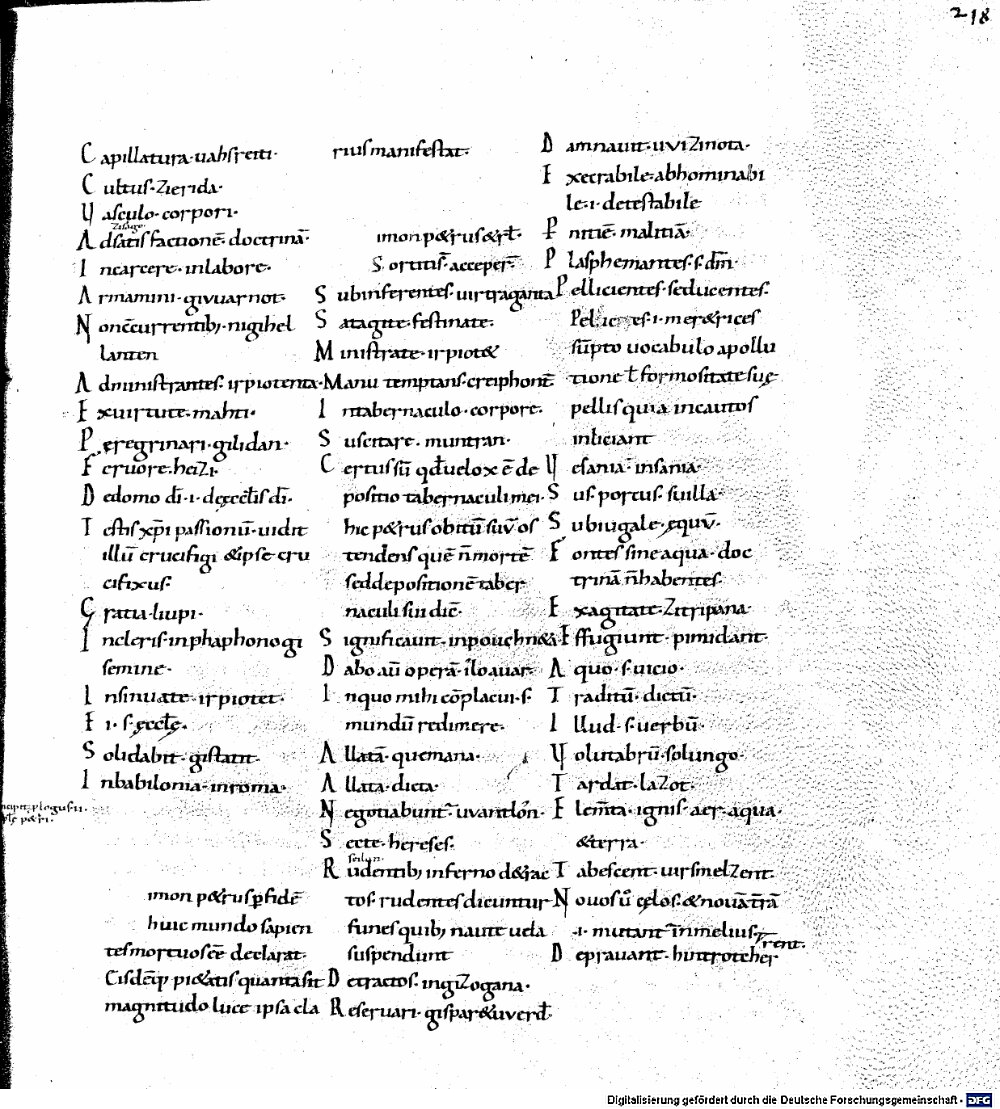 218
C apillatura · uahsreiti ·
C ultus · Zierida ·
V asculo · corpori ·
A dsatisfactionē · doctrinā ·
I ncarcere · inlabore ·
A rmamini · givuarnot ·
N oncc̄urrentibꝫ · nigihel
lanten
A dministrantes · irpiotenta ·
E xuirtute · mahti ·
P eregrinari · gilidan ·
F eruore · heiZi ·
D edomo dī · i · deęccl̄is dī ·
T estis xp̄i passionū · uidit
illū crucifigi &ipse cru
cifixus ·
G ratia · liupi ·
I ncleris · inphaphonogi
semine ·
I nsinuate · irpiotet ·
E · i · s · ęccl̄ę ·
S olidabit · gistatit ·
I nbabilonia · inroma ·
imon p&rus ꝓfidē
huic mundo sapien
tes mortuos eē declarat ·
magnitudo luce ipsa cla
rius manifestat ·
imon p&rus &
S ortiti s̄ · acceper̄ ·
S ubinferentes · uirtraganta
S atagite · festinate ·
M inistrate · irpiot&
Manu temptans · creiphont̄ ·
I ntabernaculo · corpore ·
S uscitare · muntran ·
C ertus sū qđ uelox ē de
positio tabernaculi mei ·
hic p&rus obitū suv̄ os
tendens quē n̄ mortē
sed depositionē taber
naculi sui diē ·
S ignificauit · inpouhnida
D abo aū operā · iloauar ·
I nquo mihi cōplacui · s ·
mundū redimere ·
A llatā · quemana ·
A llata · dicta ·
N egotiabunt̄ · uvantlōn ·
S ecte · hereses ·
R udentibꝫ inferno d&rac
tos · rudentes dicuntur
funes quibꝫ naute uela
suspendunt
D etractos · ingiZogana ·
R eseruari · gispar&uverđ
D amnauit · uviZinota ·
E xecrabile · abhominabi
le · i · detestabile
P nitiē · malitiā ·
P lasphemantes · s · dm̄ ·
P ellicientes · seducentes ·
i · mer&rices
sūpto uocabulo apollu
tione ł formositate suę
pellis quia incautos
inliciant
V esania · insania ·
S us · porcus · suilla ·
S ubiugale · equv̄ ·
F ontes sine aqua · doc
trinā n̄ habentes ·
E xagitate · Zitripana ·
E ffugiunt · pimidant ·
A quo · s · uicio ·
T raditū · dictū ·
I llud · s · uerbū ·
V olutabrū · solungo ·
T ardat · laZot ·
E lem̄ta · ignis · aer · aqua ·
&terra ·
T abescent · uirsmelZent ·
N ovos ū cęlos · & nouā t̄rā
· i · mutant̄ in melius ·
D eprauant · huirotcher
rent ·
Digitalisierung gefördert durch die Deutsche Forschungsgemeinschaft · DFG